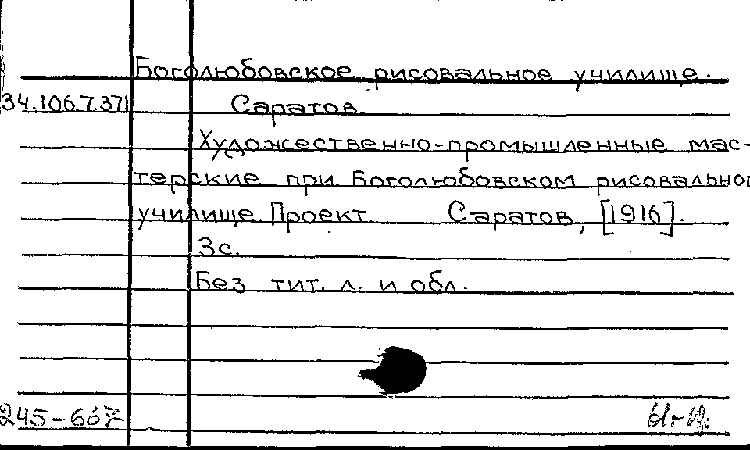 Боголюбовское рисовальное училище.
34.106.7.371 Саратов.
Художественно-промышленные мас-
терские при Боголюбовском рисовально
училище. Проект. Саратов, [1916].
3с.
Без тит. л. и обл.
245-667